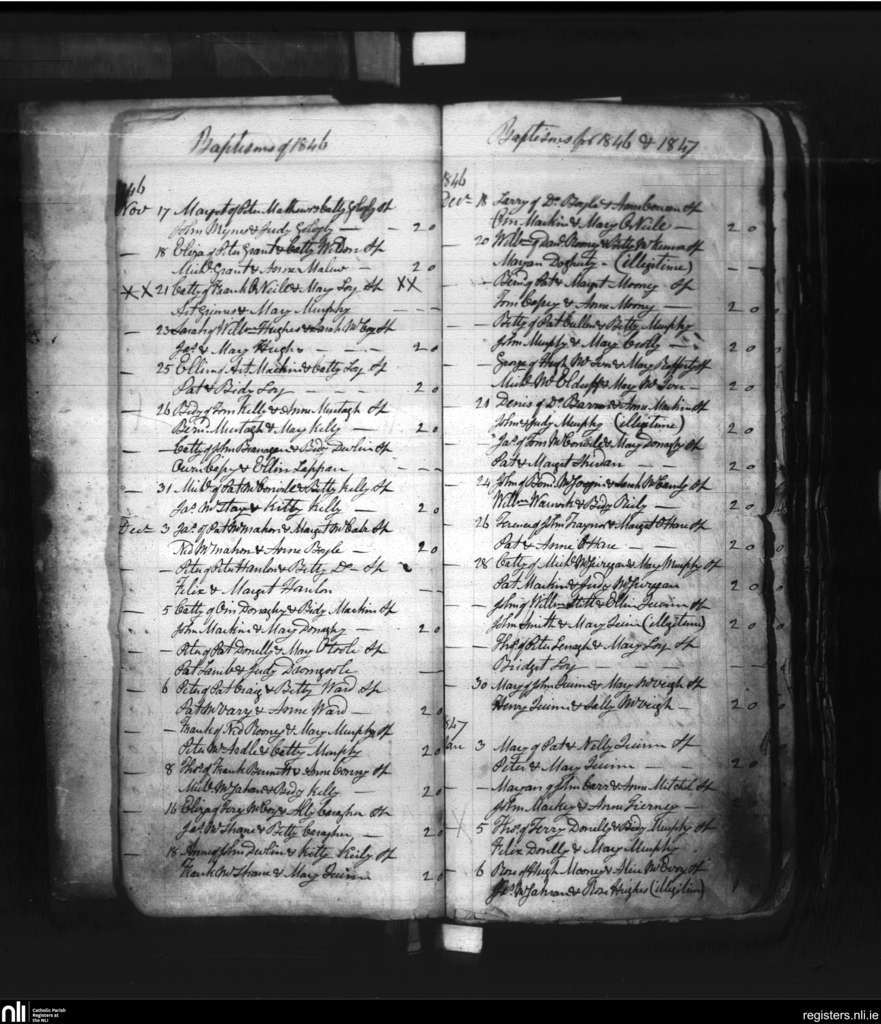 Baptisms of 1846
46
Nov 17 Margt of Peter Mathews & Catty Golagly Sp
John Byrne & Judy Golagly — 2 0
— 18 Eliza of Peter Grant & Catty McDon Sp
Michl Grant & Anne Malew — 2 0
XX 21 Catty of Frank O Neill & Mary Loy Sp XX
Art Grimes & Mary Murphy — — —
— 23 Sarah of Willm Hughes & Sarah McCoy Sp
Jas & Mary Hughs — — — 2 0
— 25 Ellin of Art Mackin & Catty Loy Sp
Pat & Bidy Loy — — — 2 0
— 26 Bidy of Tom Kelly & Anne Murtagh Sp
Bernd Murtagh & Mary Kelly — 2 0
— — Catty of John Branagan & Bidy Devlin Sp
Owen Copy & Ellin Lappan — — —
— 31 Michl of Pat McConvile & Betty Kelly Sp
Jas McStay & Kitty Kelly — 2 0
Decr 3 Jas of Pat McMahon & Margt McCabe Sp
Ned McMahon & Anne Boyle — 2 0
— — Peter of Peter Hanlon & Betty Do Sp
Felix & Margt Hanlon — —
— 5 Catty of Om Donaghy & Bidy Mackin Sp
John Mackin & Mary Donaghy — 2 0
— — Peter of Pat Donelly & Mary OToole Sp
Pat Lamb & Judy Damgoole —
— 6 Peter of Pat Craig & Betty Ward Sp
Pat McVary & Anne Ward — 2 0
— — Frank of Ned Rooney & Mary Murphy Sp
Peter McArdle & Catty Murphy 2 0
— 8 Thos of Frank Bennett & Anne Conroy Sp
Michl McCahan & Bidy Kelly — 2 0
— 16 Eliza of Terry McCoy & Ally Caragher Sp
Jas McShane & Betty Caragher — 2 0
— 18 Anne of John Devlin & Kitty Keily Sp
Frank McShane & Mary Quinn 2 0
Baptisms for 1846 & 1847
1846
Decr 18 Larry of Ds Boyle & Anne Sp
Om Mackin & Mary O Neile — 2 0
— 20 Willm of Danl Rooney & Betty McKenna Sp
Maryan Dogherty — (illegitime) — —
— — Bernd of Pat & Margt Mooney Sp
Tom Copey & Anne Mooney — 2 0
— — Betty of Pat Cullen & Betty Murphy
John Murphy & Mary — 2 0
— — George of Hugh McIver & Mary Rafferty Sp
Michl McElduff & Mary McIver — 2 0
— 21 Denis of Ds Barron & Anne Mackin Sp
John & Judy Murphy (illegitime) 2 0
— — Jas of Tom McConvile & Mary Donaghy Sp
Pat & Margt Sheridan — — 2 0
— 24 John of Bernd McGoggin & Sarah McCamly Sp
Willm Warnock & Bidy Reily — 2 0
— 26 Terence of John Traynor & Margt OHare Sp
Pat & Anne OHare — — 2 0
— 28 Catty of Michl McGivigan & Mary Murphy Sp
Pat Mackin & Judy McGivigan 2 0
— — John of Willm Stitt & Ellin Quinn Sp
John Smith & Mary Quin (illegitim) 2 0
— — Thos of Peter Lenagh & Mary Loy Sp
Bridget Loy — —
— 30 Mary of John Quinn & Mary McVeigh Sp
Henry Quinn & Sally McVeigh — 2 0
1847
Jan 3 Mary of Pat & Nelly Quinn Sp
Peter & Mary Quinn — 2 0
— — Maryan of John Carr & Anne Mitchel Sp
John Mackey & Anne Tierney —
X 5 Thos of Terry Donelly & Bidy Murphy Sp
Felix Donelly & Mary Murphy
— 6 Rose of Hugh Mooney & Alice McEvoy Sp
Jas McCahran & Rose Hughes (illegitim)
nli
Catholic Parish
Registers at
the NLI
registers.nli.ie